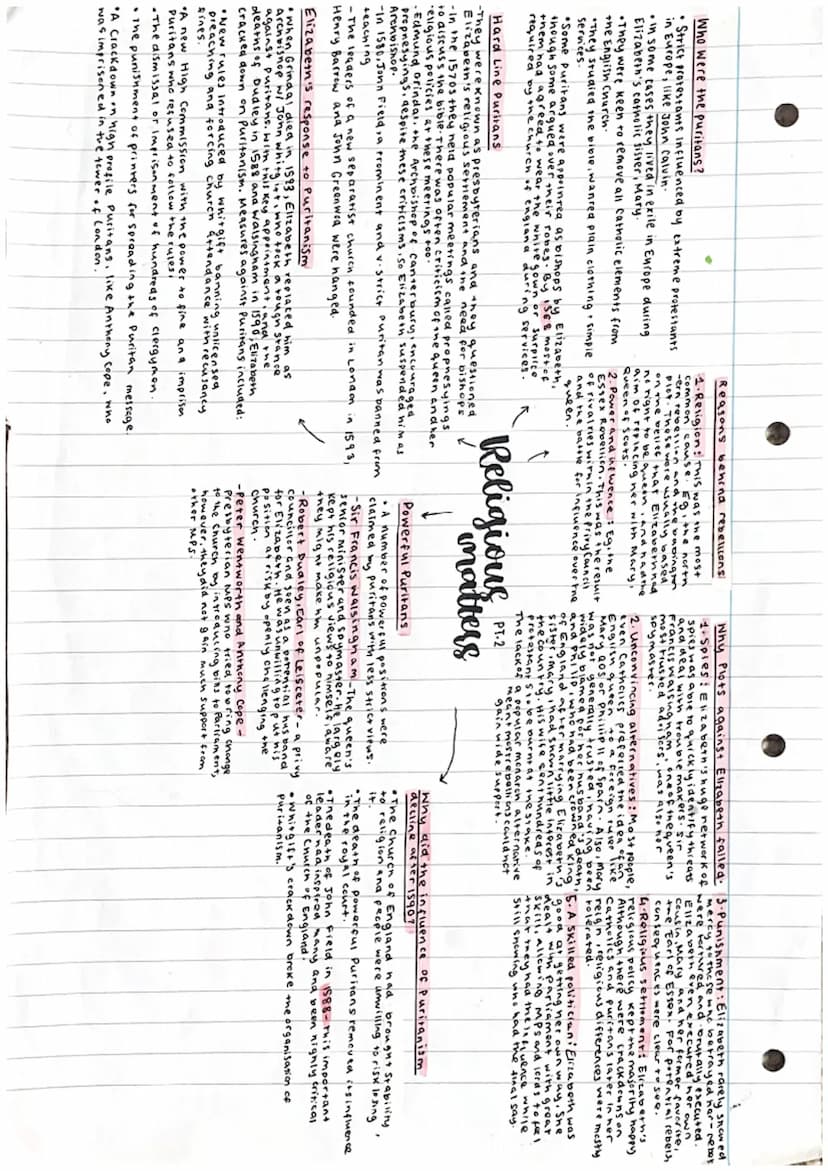 Who were the Puritans?
• Strict protestants influenced by extreme protestants
in Europe, like John Calvin.
• In some cases they lived in exile in Europe during
Elizabeth's catholic sister, Mary.
• They were keen to remove all Catholic elements from
the English Church.
• They studied the bible, wanted plain clothing + simple
services.
• Some Puritans were appointed as bishops by Elizabeth,
though some argued over their robes. By 1568 most of
them had agreed to wear the white gown or surplice
required by the church of England during services.
Hard Line Puritans
-They were known as presbyterians and they questioned
Elizabeth's religious settlement and the need for bishops
-In the 1570s they held popular meetings called prophesyings
to discuss the bible. There was often criticism of the queen and her
religious policies at these meetings too.
-Edmund Grindal, the Archbishop of Canterbury, encouraged
prophesyings, despite these criticisms, so Elizabeth suspended him as
Archbishop.
-In 1580, John Field, a prominent and v. strict Puritan was banned from
teaching
- The leaders of a new separatist church founded in London in 1593,
Henry Barrow and John Greenwood were hanged.
Elizabeth's response to Puritanism
• When Grindal died in 1583, Elizabeth replaced him as
Archbishop w/ John Whitgift, who took a tough stance
against Puritans. With this key appointment, and the
deaths of Dudley in 1588 and Walsingham in 1590, Elizabeth
cracked down on Puritanism. Measures against Puritans included:
• New rules introduced by Whitgift banning unlicensed
preaching and forcing Church attendance with recusancy
fines
• A new High Commission with the power to fine and imprison
Puritans who refused to follow the rules:
• The dismissal or imprisonment of hundreds of clergymen.
• The punishment of printers for spreading the Puritan message.
• A Crackdown on high profile Puritans, like Anthony Cope, who
was imprisoned in the tower of London.
Reasons behind rebellions
1. Religion: This was the most
common cause. Eg. the north
-ern rebellion and the babington
plot. Those were usually based
on the belief that Elizabeth had
no right to be queen and had the
aim of replacing her with Mary,
Queen of Scots.
2. Power and influence: Eg. the
Essex Rebellion. This was the result
of rivalries within the Privy Council
and the battle for influence over the
queen.
Religious
matters
PT.2
Powerful Puritans
• A number of powerful positions were
claimed by puritans with less strict views.
-Sir Francis Walsingham - The queen's
senior minister and spymaster. He largely
kept his religious views to himself, aware
they might make him unpopular.
-Robert Dudley, Earl of Leisceter - a privy
councillor and seen as a potential husband
for Elizabeth. He was unwilling to put his
position at risk by openly challenging the
church.
-Peter Wentworth and Anthony Cope -
Presbyterian MPs who tried to bring change
to the Church by introducing bills to Parliament,
however, they did not gain much support from
other MPs.
Why Plots against Elizabeth failed.
1. Spies: Elizabeth's huge network of
spies was able to quickly identify threats
and deal with troublemakers. Sir
Francis Walsingham, one of the queen's
most trusted advisors, was also her
spymaster.
2. Unconvincing alternatives: Most people,
even Catholics preferred the idea of an
English queen to a foreign ruler like
Mary QOS or Philip II of Spain. Also, Mary
was not generally trusted, having been
widely blamed for her husband's death,
and Philip, who had been crowned King
of England after marrying Elizabeth's
sister, Mary, had shown little interest in
the country. His wife sent hundreds of
protestants to be burnt at the stake.
The lack of a popular monarch alternative
meant most rebellions could not
gain wide support.
3. Punishment: Elizabeth rarely showed
mercy to those who betrayed her - rebels
were tortured and brutally executed.
Elizabeth even executed her own
cousin, Mary and her former favorite,
the Earl of Essex. For potential rebels,
consequences were clear to see.
4. Religious settlement: Elizabeth's
religious policy kept the majority happy
Although there were crackdowns on
Catholics and puritans later in her
reign, religious differences were mostly
tolerated.
5. A Skilled politician: Elizabeth was
good at getting her own way. She
dealt with Parliament with great
skill, allowing MPs and lords to feel
that they had the influence while
still showing who had the final say.
Why did the influence of Puritanism
decline after 1590?
• The Church of England had brought stability,
to religion and people were unwilling to risk losing
it.
• The death of powerful Puritans removed its influence
in the royal court.
• The death of John Field in 1588 - this important
leader had inspired many and been highly critical
of the Church of England.
• Whitgift's crackdown broke the organisation of
Puritanism.